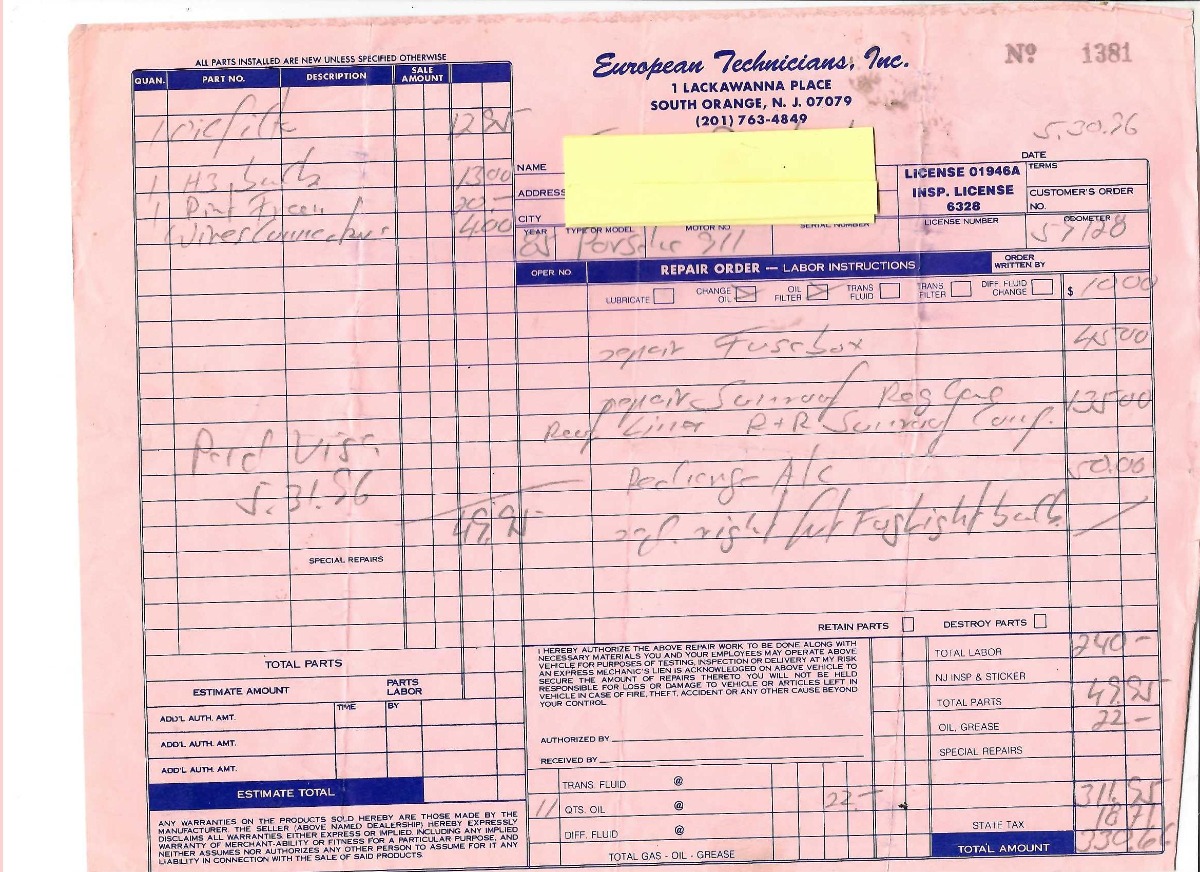 European Technicians, Inc.
1 LACKAWANNA PLACE
SOUTH ORANGE, N. J. 07079
(201) 763-4849
No 1381
5.30.96
DATE
ALL PARTS INSTALLED ARE NEW UNLESS SPECIFIED OTHERWISE
QUAN. PART NO. DESCRIPTION SALE AMOUNT
1 12 95
1 H3 bulb 13 00
1 20.-
Wires Connectors 4 00
Paid Visa
5.31.96
49.95
SPECIAL REPAIRS
NAME
ADDRESS
CITY
LICENSE 01946A
INSP. LICENSE
6328
LICENSE NUMBER
TERMS
CUSTOMER'S ORDER NO.
ODOMETER
57128
YEAR TYPE OR MODEL MOTOR NO. SERIAL NUMBER
85 Porsche 911
OPER. NO. REPAIR ORDER — LABOR INSTRUCTIONS ORDER WRITTEN BY
LUBRICATE CHANGE OIL OIL FILTER TRANS FLUID TRANS FILTER DIFF FLUID CHANGE $ 10 00
repair Fusebox 45 00
repair Sunroof 135 00
Liner R+R Sunroof
A/C 50.00
right Foglight bulb
RETAIN PARTS DESTROY PARTS
TOTAL PARTS
ESTIMATE AMOUNT PARTS LABOR
TIME BY
ADD'L AUTH. AMT.
ADD'L AUTH. AMT.
ADD'L AUTH. AMT.
ESTIMATE TOTAL
ANY WARRANTIES ON THE PRODUCTS SOLD HEREBY ARE THOSE MADE BY THE
MANUFACTURER. THE SELLER (ABOVE NAMED DEALERSHIP) HEREBY EXPRESSLY
DISCLAIMS ALL WARRANTIES EITHER EXPRESS OR IMPLIED, INCLUDING ANY IMPLIED
WARRANTY OF MERCHANT-ABILITY OR FITNESS FOR A PARTICULAR PURPOSE, AND
NEITHER ASSUMES NOR AUTHORIZES ANY OTHER PERSON TO ASSUME FOR IT ANY
LIABILITY IN CONNECTION WITH THE SALE OF SAID PRODUCTS.
I HEREBY AUTHORIZE THE ABOVE REPAIR WORK TO BE DONE ALONG WITH
NECESSARY MATERIALS YOU AND YOUR EMPLOYEES MAY OPERATE ABOVE
VEHICLE FOR PURPOSES OF TESTING, INSPECTION OR DELIVERY AT MY RISK
AN EXPRESS MECHANIC'S LIEN IS ACKNOWLEDGED ON ABOVE VEHICLE TO
SECURE THE AMOUNT OF REPAIRS THERETO YOU WILL NOT BE HELD
RESPONSIBLE FOR LOSS OR DAMAGE TO VEHICLE OR ARTICLES LEFT IN
VEHICLE IN CASE OF FIRE, THEFT, ACCIDENT OR ANY OTHER CAUSE BEYOND
YOUR CONTROL.
AUTHORIZED BY
RECEIVED BY
TRANS. FLUID @
11 QTS. OIL @ 22.-
DIFF. FLUID @
TOTAL GAS - OIL - GREASE
TOTAL LABOR 240-
NJ INSP & STICKER
TOTAL PARTS 49.95
OIL, GREASE 22-
SPECIAL REPAIRS
311.95
STATE TAX 18 71
TOTAL AMOUNT 330.66